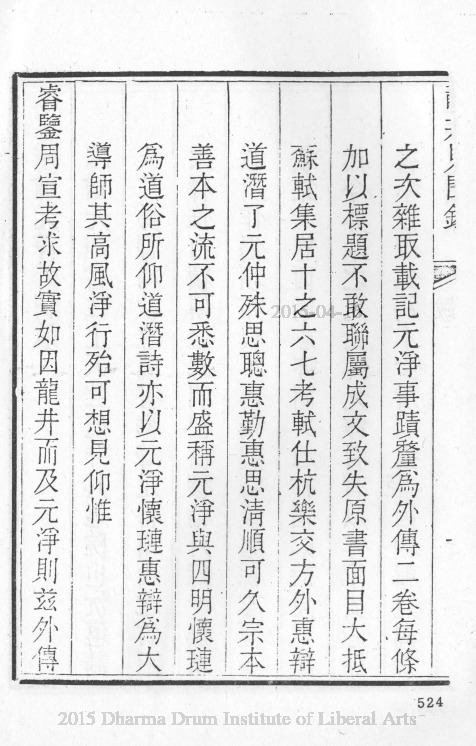 之次雜取載記元淨事蹟釐爲外傳二卷每條
加以標題不敢聯屬成文致失原書面目大抵
蘇軾集居十之六七考軾仕杭樂交方外惠辯
道潛了元仲殊思聰惠勤惠思清順可久宗本
善本之流不可悉數而盛稱元淨與四明懷璉
爲道俗所仰道潛詩亦以元淨懷璉惠辯爲大
導師其高風淨行殆可想見仰惟
睿鑒周宣考求故實如因龍井而及元淨則茲外傳
524
2015 Dharma Drum Institute of Liberal Arts